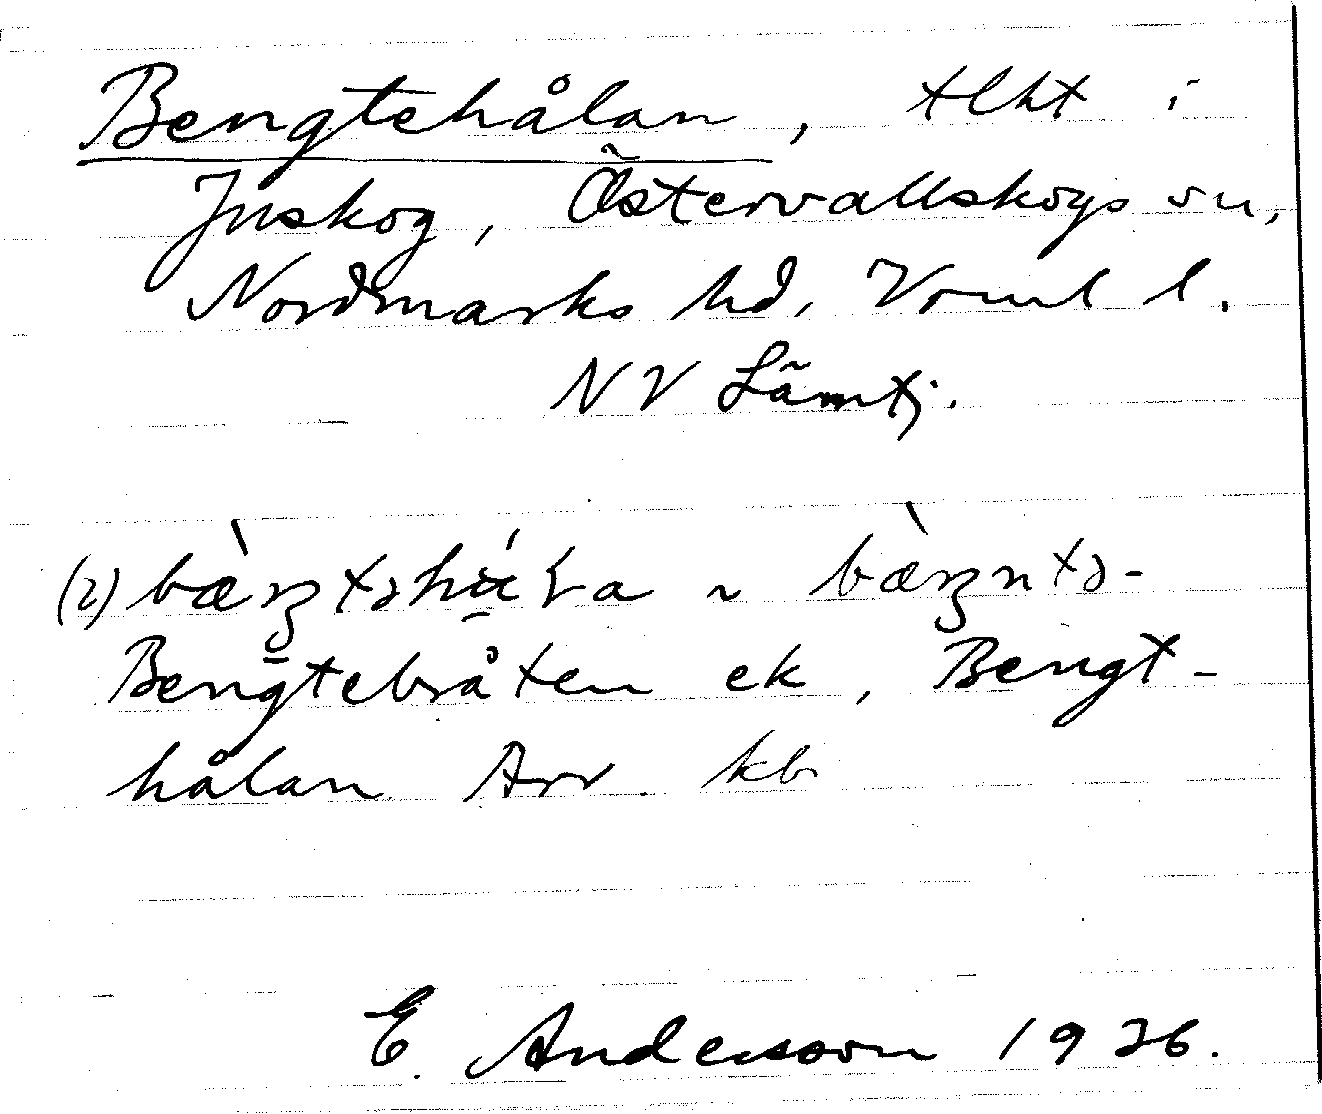 Bengtehålan, tlht i
Juskog, Östervallskogs sn,
Nordmarks hd, Vrml l.
NV Lämtj.
(2) bæ̀ŋtəhɑ́ɽa ~ bæ̀ŋntə-
Bengtebråten ek, Bengt-
hålan Arr. kb
E. Andersson 1926.